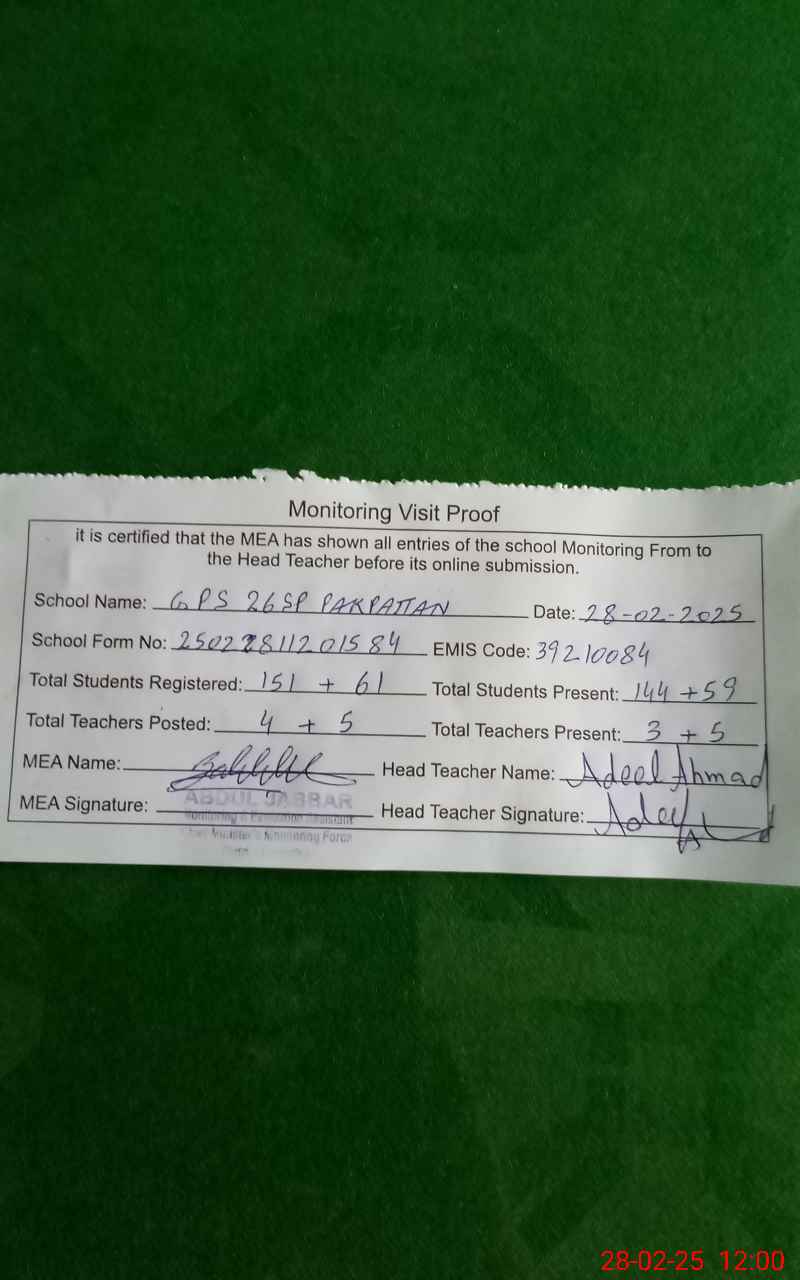 Monitoring Visit Proof
it is certified that the MEA has shown all entries of the school Monitoring From to
the Head Teacher before its online submission.
School Name: GPS 26SP PAKPATTAN Date: 28-02-2025
School Form No: 25022811201584 EMIS Code: 39210084
Total Students Registered: 151 + 61 Total Students Present: 144 + 59
Total Teachers Posted: 4 + 5 Total Teachers Present: 3 + 5
MEA Name: Head Teacher Name: Adeel Ahmad
MEA Signature: ABDUL JABBAR Head Teacher Signature: Adeel
Monitoring & Evaluation Assistant
Chief Minister's Monitoring Force
28-02-25 12:00